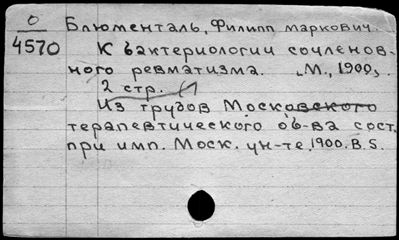 0
4570
Блюменталь, Филипп Маркович.
К бактериологии сочленов-
ного ревматизма. „М., 1900„.
2 стр.
Из трудов Московского
терапевтического об-ва сост.
при имп. Моск. ун-те, 1900. B.S.